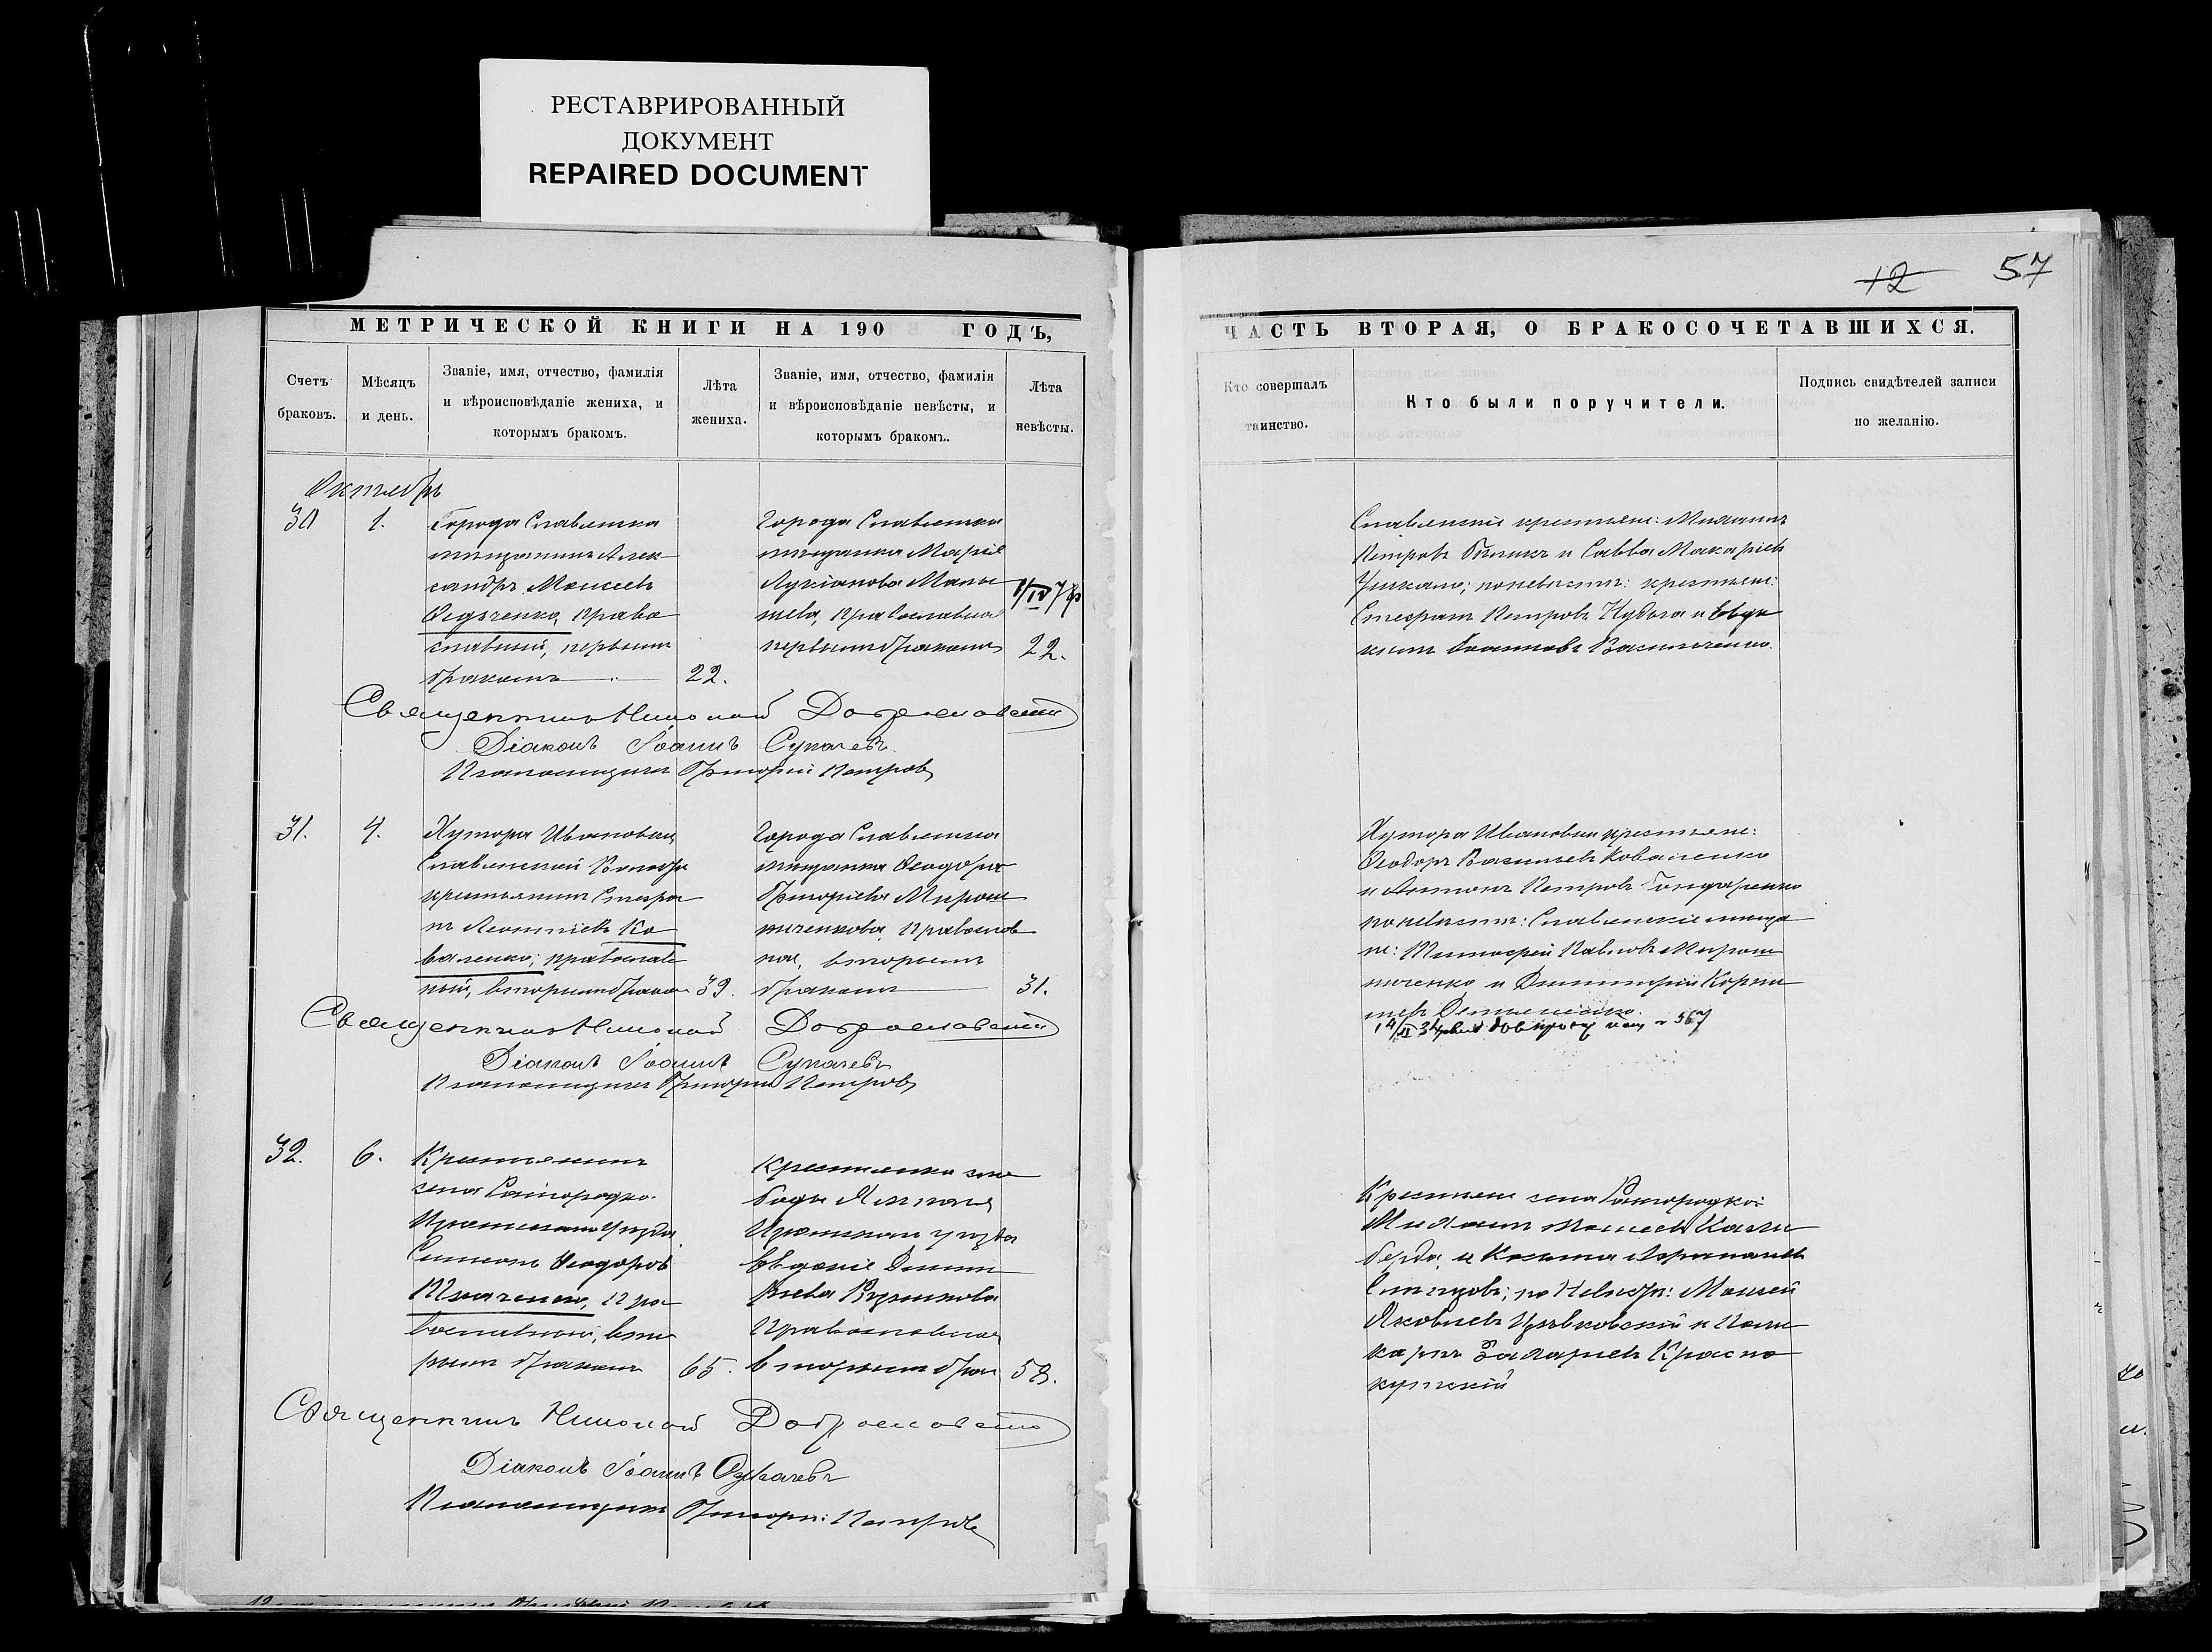 РЕСТАВРИРОВАННЫЙ
ДОКУМЕНТ
REPAIRED DOCUMENT
МЕТРИЧЕСКОЙ КНИГИ НА 190 ГОДЪ,
Счетъ браковъ.
Мѣсяцъ и день.
Званіе, имя, отчество, фамилія
и вѣроисповѣданіе жениха, и
которымъ бракомъ.
Лѣта
жениха.
Званіе, имя, отчество, фамилія
и вѣроисповѣданіе невѣсты, и
которымъ бракомъ.
Лѣта
невѣсты.
Октябрь
30 1.
Города Славянска
мѣщанинъ Алек
сандръ Моисеевъ
Федченко, Право
славный, первымъ
бракомъ 22.
Города Славянска
мѣщанка Марія
Лукіанова
Православная
первымъ бракомъ 22.
Священникъ Николай Доброславскій
Діаконъ Іоаннъ Сукачевъ
Псаломщикъ Григорій Петровъ
31. 4.
Хутора Ивановки
Славянской Волости
крестьянинъ Стефа
нъ Леонтіевъ Ко
валенко, православ
ный, вторымъ брако 39.
Города Славянска
мѣщанка Феодора
Григоріева Мирош
ниченкова, Православ
ная, вторымъ
бракомъ 31.
Священникъ Николай Доброславскій
Діаконъ Іоаннъ Сукачевъ
Псаломщикъ Григорій Петровъ
32. 6.
Крестьянинъ
села Райгородка
Изюмскаго уѣзда
Симеонъ Феодоровъ
Ткаченко, Пра
вославный, вто
рымъ бракомъ 65.
Крестьянка сло
боды Ямполя
Изюмскаго уѣзда
Евдокія Дими
тріева
Православная
вторымъ брак 58.
Священникъ Николай Доброславскій
Діаконъ Іоаннъ Сукачевъ
Псаломщикъ Григорій Петровъ
12 57
ЧАСТЬ ВТОРАЯ, О БРАКОСОЧЕТАВШИХСЯ.
Кто совершалъ
таинство.
Кто были поручители.
Подпись свидѣтелей записи
по желанію.
Славянскіе крестьяне: Михаилъ
Петровъ и Савва Макаріевъ
по невѣстѣ: крестьяне:
Стефанъ Петровъ и Евдо
кимъ Іоанновъ Василенко.
Хутора Ивановки крестьяне:
Феодоръ Васильевъ Коваленко
и Антонъ Петровъ Гончаренко
по невѣстѣ: Славянскіе мѣща
не: Тимофей Павловъ Мирош
ниченко и Димитрій Корни
ліевъ
Крестьяне села Райгородка:
Михаилъ Моисеевъ Кали
берда, и Косьма
по Невѣстѣ: Моисей
Яковлевъ и Поли
карпъ Захаріевъ Красно
кутскій